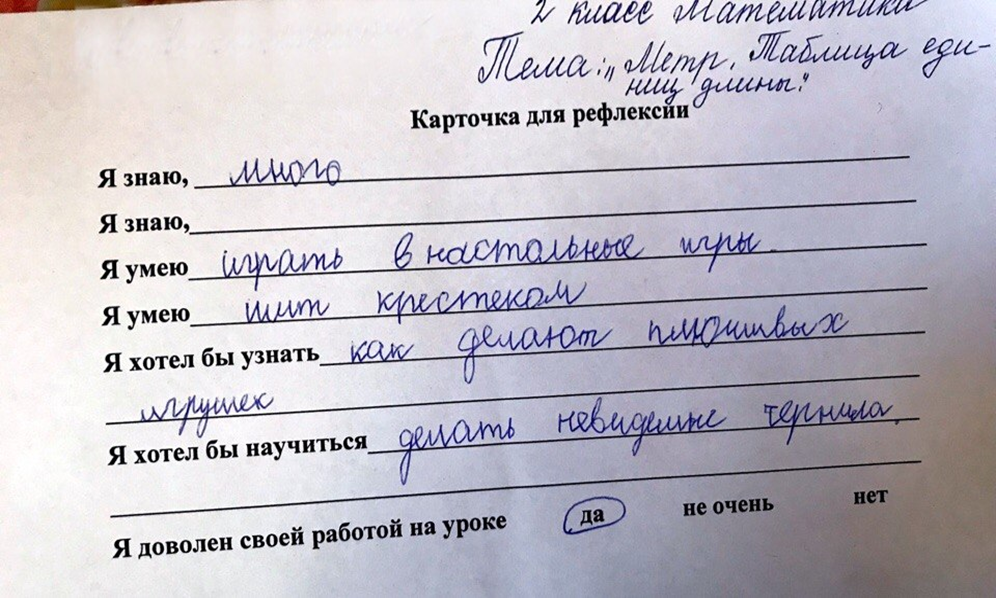 2 класс Математика
Тема: „Метр. Таблица еди-
ниц длины."
Карточка для рефлексии
Я знаю, много
Я знаю,
Я умею играть в настольные игры
Я умею шит крестеком
Я хотел бы узнать как делают плюшвых
игрушек
Я хотел бы научиться делать невидемые тернила.
Я доволен своей работой на уроке да не очень нет